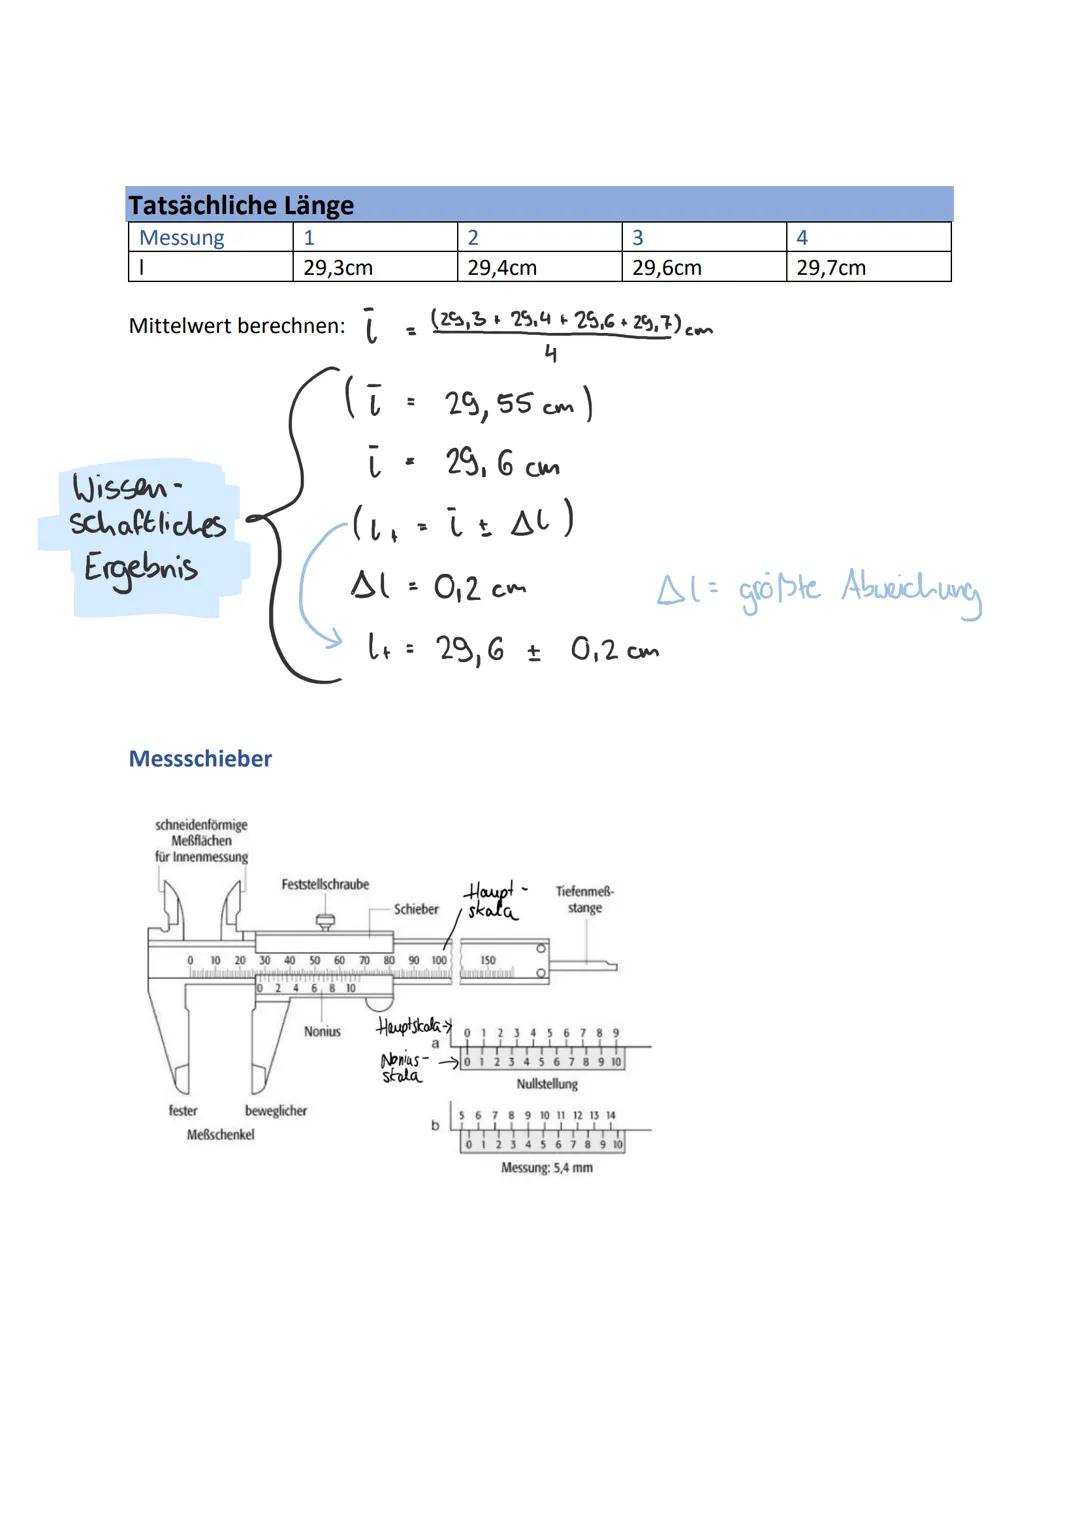 Tatsächliche Länge
Messung 1 2 3 4
l 29,3cm 29,4cm 29,6cm 29,7cm
Mittelwert berechnen: l̅ = (29,3 + 29,4 + 29,6 + 29,7) cm
4
(l̅ = 29,55 cm)
l̅ = 29,6 cm
Wissen-
schaftliches
Ergebnis
(l₊ = l̅ ± Δl)
Δl = 0,2 cm
Δl = größte Abweichung
l₊ = 29,6 ± 0,2 cm
Messschieber
schneidenförmige
Meßflächen
für Innenmessung
Feststellschraube
Schieber
Haupt-
skala
Tiefenmeß-
stange
0 10 20 30 40 50 60 70 80 90 100 150
0 2 4 6 8 10
Nonius
Hauptskala→
a
0 1 2 3 4 5 6 7 8 9
Nonius-
skala
→
0 1 2 3 4 5 6 7 8 9 10
Nullstellung
fester beweglicher
Meßschenkel
b
5 6 7 8 9 10 11 12 13 14
0 1 2 3 4 5 6 7 8 9 10
Messung: 5,4 mm